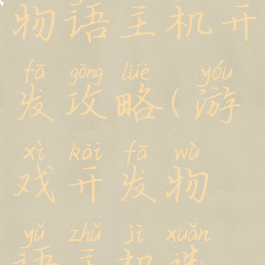 物语主机开
fā gōng lüè yóu
发攻略(游
xì kāi fā wù
戏开发物
yǔ zhǔ jī xuǎn
语主机选